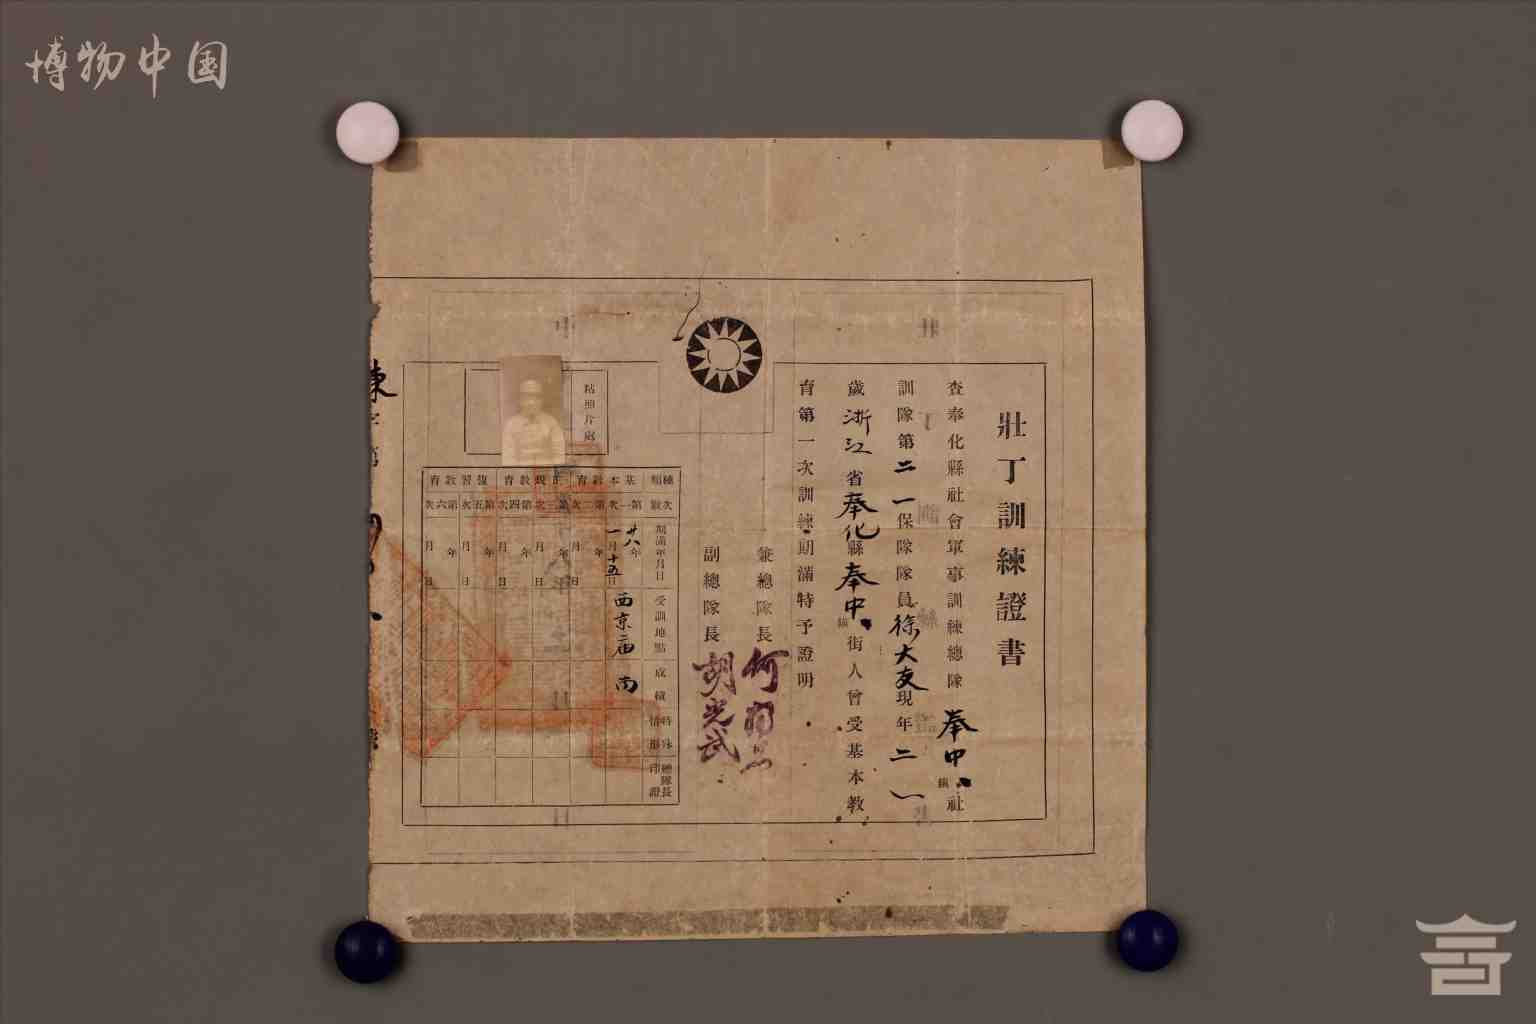 博物中国
壯丁訓練證書
查奉化縣社會軍事訓練總隊奉中鎮社
訓隊第二一保隊隊員徐大友現年二
歲浙江省奉化縣奉中鎮街人曾受基本教
育第一次訓練期滿特予證明
兼總隊長何
副總隊長胡光武
粘照片處
種類
基本教育
正規教育
復習教育
次數
第一次
第二次
第三次
第四次
第五次
第六次
期滿年月日
廿八年一月十五日
年月日
年月日
年月日
年月日
年月日
受訓地點
西京廟
成績
特殊情形
總隊長印證